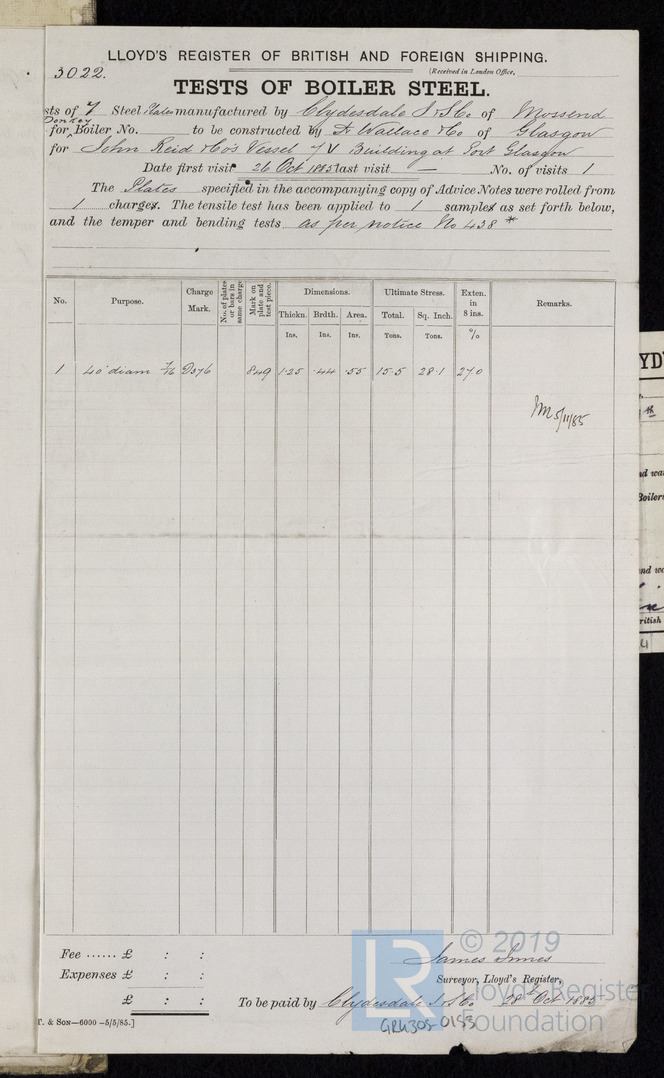 LLOYD'S REGISTER OF BRITISH AND FOREIGN SHIPPING.
3022.
(Received in London Office,
TESTS OF BOILER STEEL.
sts of 7 Steel Plates manufactured by Clydesdale I & S Co of Mossend
Donkey
for Boiler No. to be constructed by F Wallace & Co of Glasgow
for John Reid & Co's Vessel Building at Port Glasgow
Date first visit 26 Oct 1885 last visit — No. of visits 1
The Plates specified in the accompanying copy of Advice Notes were rolled from
1 charges. The tensile test has been applied to 1 samples as set forth below,
and the temper and bending tests as per notice No 438 *
No. Purpose. Charge Mark. No. of plates or bars in same charge Mark on plate and test piece. Dimensions. Ultimate Stress. Exten. in 8 ins. Remarks.
Thickn. Brdth. Area. Total. Sq. Inch.
Ins. Ins. Ins. Tons. Tons. %
1 40" diam 7/16 D376 849 1.25 .44 .55 15.5 28.1 27.0
5/11/85
Fee ...... £ : :
Expenses £ : :
£ : :
James Innes
Surveyor, Lloyd's Register,
To be paid by Clydesdale I & S Co. 28 Oct 1885
T. & SON—6000 –5/5/85.]
GRK305-0153
LR
© 2019
Lloyd's Register
Foundation
YD
th
nd wa
Boiler
nd wa
ritish